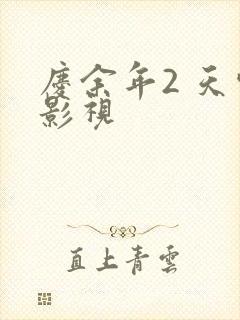 慶余年2 天
影視
直上青雲